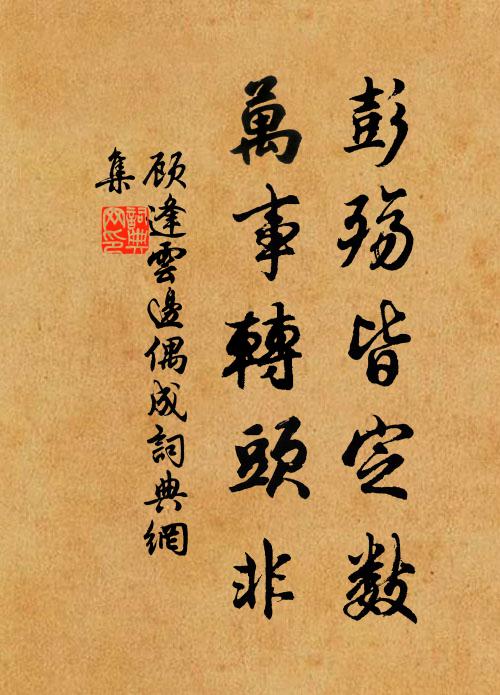 彭殤皆定數
萬事轉頭非
顾逢雲邊偶成詞典網
集
詞典网印